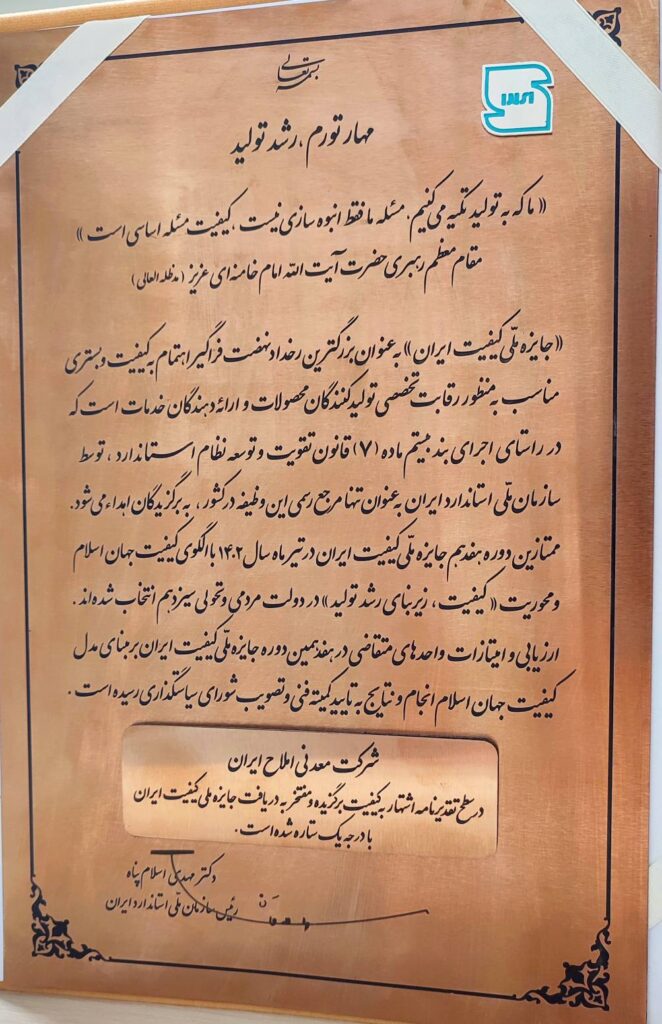 بسمه تعالی
مهار تورم، رشد تولید
« ما که به تولید تکیه می‌کنیم. مسئله ما فقط انبوه سازی نیست، کیفیت مسئله اساسی است »
مقام معظم رهبری حضرت آیت الله امام خامنه‌ای عزیز (مدظله العالی)
«جایزه ملّی کیفیت ایران» به عنوان بزرگترین رخداد نهضت فراگیر اهتمام به کیفیت و بستری
مناسب به منظور رقابت تخصصی تولیدکنندگان محصولات و ارائه دهندگان خدمات است که
در راستای اجرای بند بیستم ماده (۷) قانون تقویت و توسعه نظام استاندارد، توسط
سازمان ملّی استاندارد ایران به عنوان تنها مرجع رسمی این وظیفه در کشور، به برگزیدگان اهداء می‌شود.
ممتازین دوره هفدهم جایزه ملّی کیفیت ایران در تیر ماه سال ۱۴۰۲ با الگوی کیفیت جهان اسلام
و محوریت « کیفیت، زیربنای رشد تولید » در دولت مردمی و تحولی سیزدهم انتخاب شده‌اند.
ارزیابی و امتیازات واحدهای متقاضی در هفدهمین دوره جایزه ملّی کیفیت ایران بر مبنای مدل
کیفیت جهان اسلام انجام و نتایج به تایید کمیته فنی و تصویب شورای سیاستگذاری رسیده است.
شرکت معدنی املاح ایران
در سطح تقدیرنامه اشتهار به کیفیت برگزیده و مفتخر به دریافت جایزه ملی کیفیت ایران
با درجه یک ستاره شده است.
دکتر مهدی اسلام پناه
رئیس سازمان ملّی استاندارد ایران